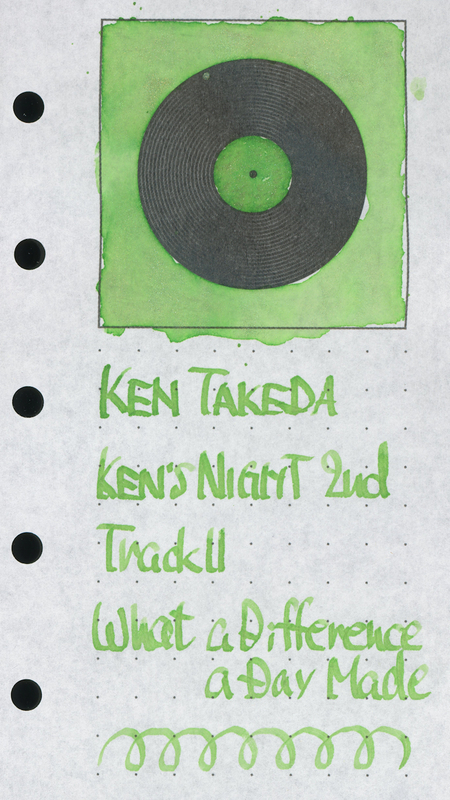 KEN TAKEDA
KEN'S NIGHT 2nd
Track 11
What a Difference
a Day Made